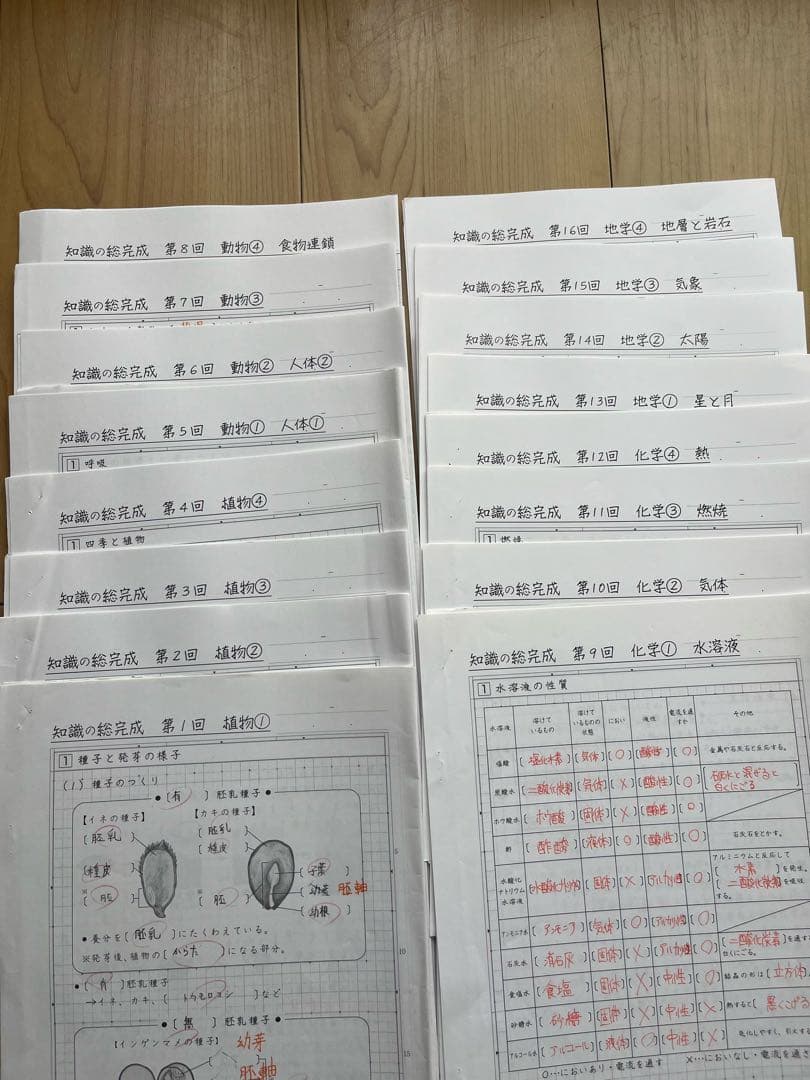 知識の総完成 第8回 動物④ 食物連鎖
知識の総完成 第7回 動物③
知識の総完成 第6回 動物② 人体②
知識の総完成 第5回 動物① 人体①
1 呼吸
知識の総完成 第4回 植物④
1 四季と植物
知識の総完成 第3回 植物③
知識の総完成 第2回 植物②
知識の総完成 第1回 植物①
1 種子と発芽の様子
(1) 種子のつくり
●〔有〕胚乳種子●
【イネの種子】
〔胚乳〕
〔種皮〕
※〔胚〕
【カキの種子】
〔胚乳〕
〔種皮〕
※〔胚〕
〔子葉〕
〔幼芽〕胚軸
〔幼根〕
●養分を〔胚乳〕にたくわえている。
※発芽後、植物の〔からだ〕になる部分。
●〔有〕胚乳種子
→イネ、カキ、〔トウモロコシ〕など
●〔無〕胚乳種子●
【インゲンマメの種子】
幼芽
胚軸
5
10
15
知識の総完成 第16回 地学④ 地層と岩石
知識の総完成 第15回 地学③ 気象
知識の総完成 第14回 地学② 太陽
知識の総完成 第13回 地学① 星と月
知識の総完成 第12回 化学④ 熱
知識の総完成 第11回 化学③ 燃焼
1 燃焼
知識の総完成 第10回 化学② 気体
知識の総完成 第9回 化学① 水溶液
1 水溶液の性質
水溶液 溶けているもの 溶けているものの状態 におい 液性 電流を通すか その他
塩酸〔塩化水素〕〔気体〕〔○〕〔酸性〕〔○〕金属や石灰石と反応する。
炭酸水〔二酸化炭素〕〔気体〕〔×〕〔酸性〕〔○〕〔石灰水と混ぜると白くにごる〕
ホウ酸水〔ホウ酸〕〔固体〕〔×〕〔酸性〕〔○〕
酢〔酢酸〕〔液体〕〔○〕〔酸性〕〔○〕石灰石をとかす。
水酸化ナトリウム水溶液〔水酸化ナトリウム〕〔固体〕〔×〕〔アルカリ性〕〔○〕アルミニウムと反応して〔水素〕を発生。〔二酸化炭素〕を吸収する。
アンモニア水〔アンモニア〕〔気体〕〔○〕〔アルカリ性〕〔○〕
石灰水〔消石灰〕〔固体〕〔×〕〔アルカリ性〕〔○〕〔二酸化炭素〕を通すと白くにごる。
食塩水〔食塩〕〔固体〕〔×〕〔中性〕〔○〕結晶の形は〔立方体
砂糖水〔砂糖〕〔固体〕〔×〕〔中性〕〔×〕熱すると〔黒くこげる
アルコール水〔アルコール〕〔液体〕〔○〕〔中性〕〔×〕
○…においあり・電流を通す ×…においなし・電流を通さ